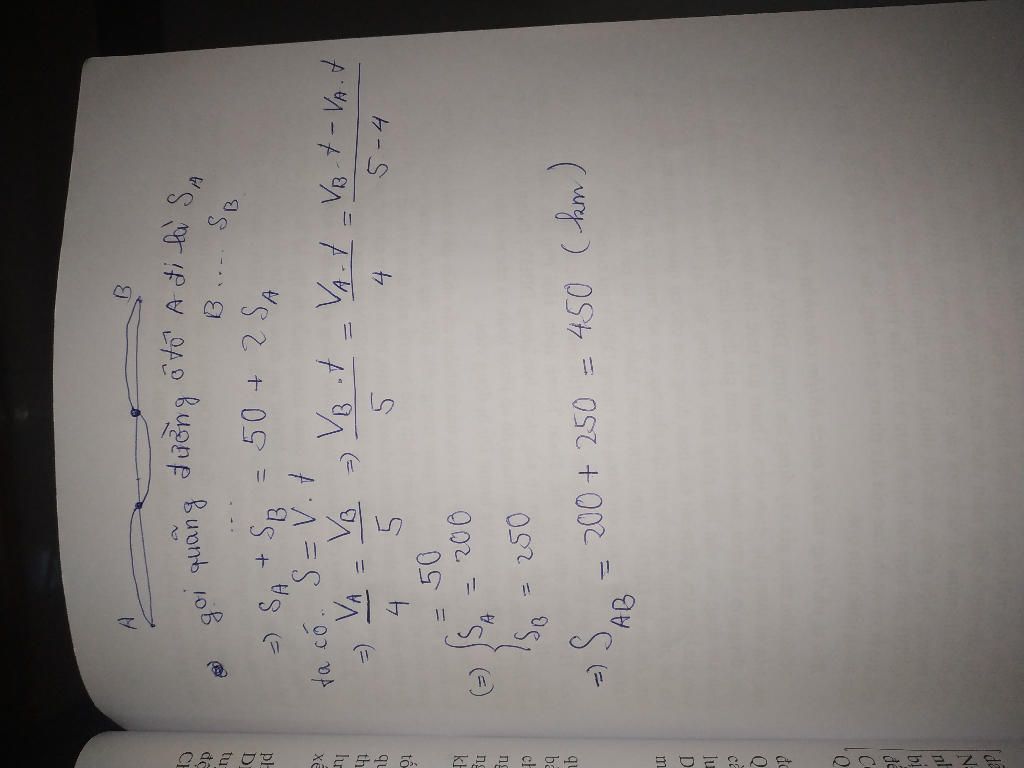 A B
gọi quãng đường ô tô A đi là S_A
... B .... S_B
=> S_A + S_B = 50 + 2 S_A
ta có: S = V . t
=> V_A / 4 = V_B / 5 => V_B . t / 5 = V_A . t / 4 = V_B . t - V_A . t / 5 - 4
= 50
(=) { S_A = 200
S_B = 250
=> S_AB = 200 + 250 = 450 (km)